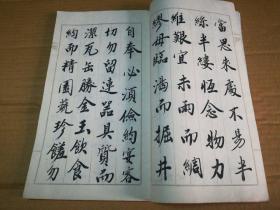 當思來處不易半
絲半縷恆念物力
維艱宜未雨而綢
繆毋臨渴而掘井
自奉必須儉約宴客
切勿留連器具質而
潔瓦缶勝金玉飲食
約而精園蔬珍饈勿